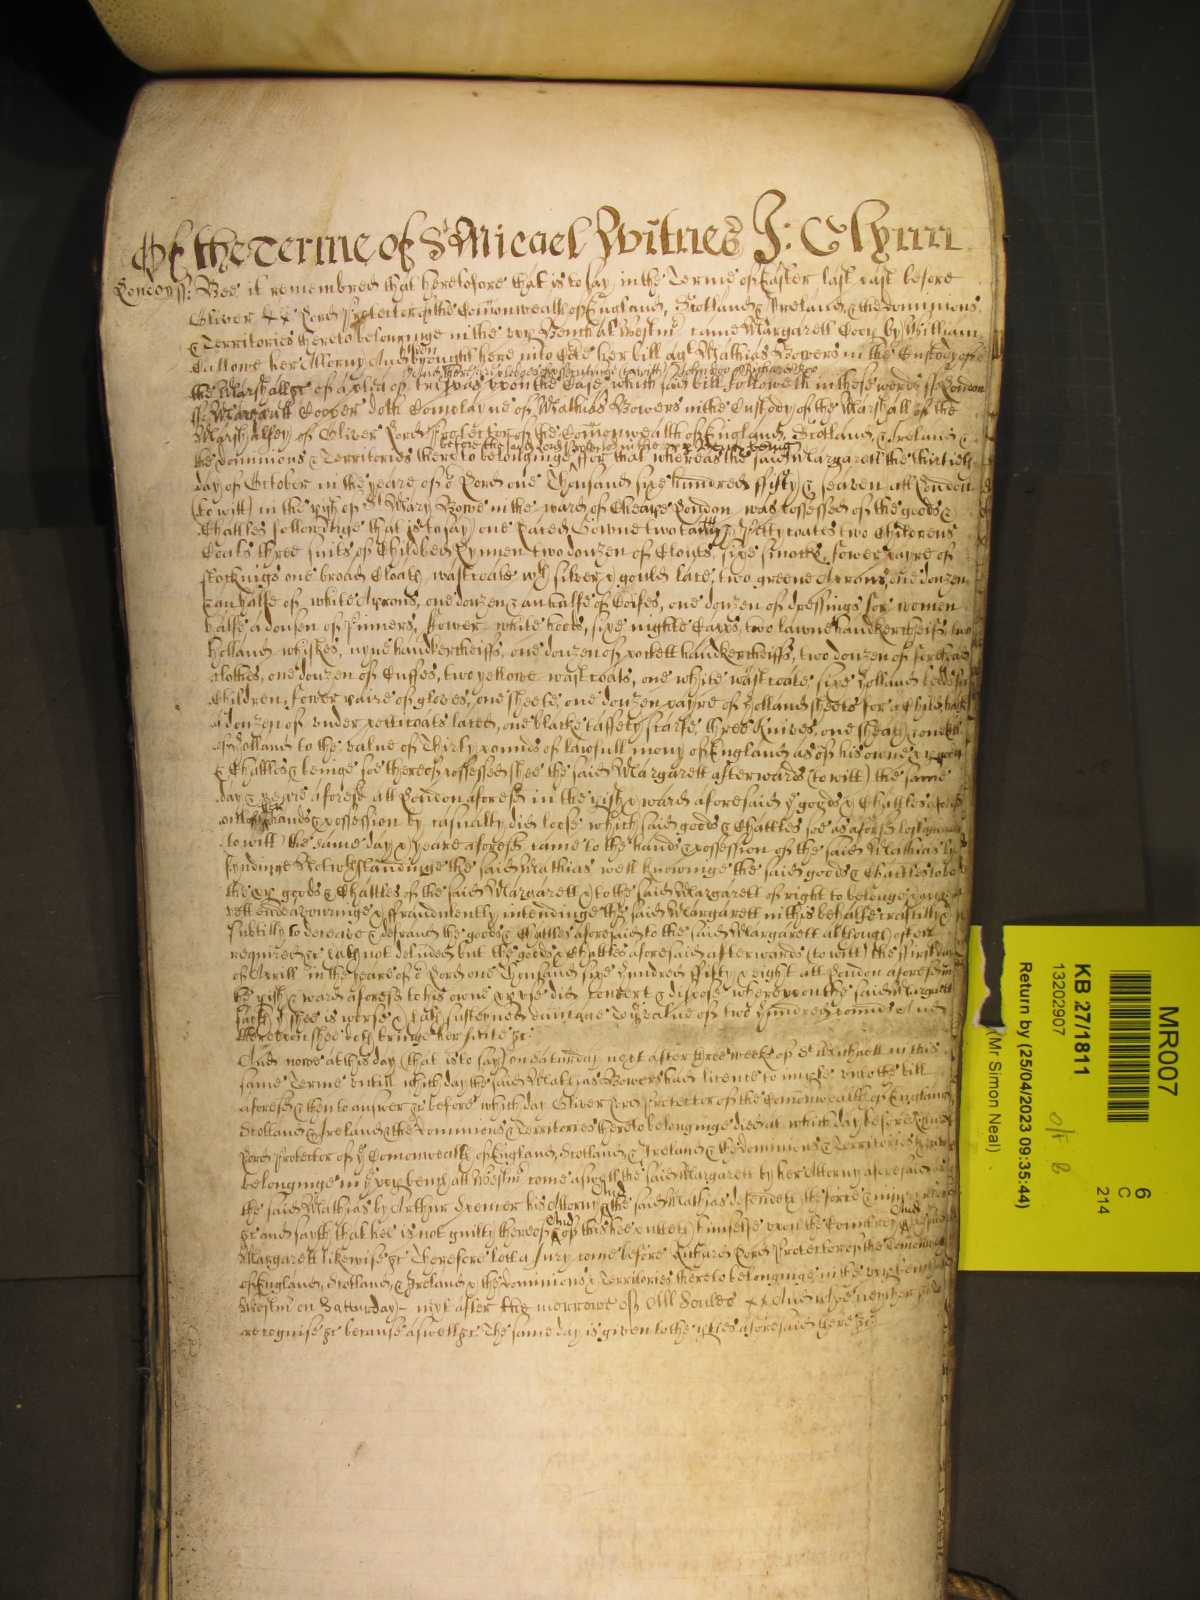 Of the Terme of St Micael Witnes J: Glynn
London ss: Bee it remembred that heretofore that is to say in the Terme of Easter last past before
Oliver Lord Protector of the Comonwealth of England, Scotland & Ireland, & the dominions
& Territories thereto belonginge in the upp Bench at Westmr came Margarett Cooper by William
Callowe her Attorny And brought here into Cte her bill agt Mathias Bowers in the Custody of
the Marshall &c of a plea of trespas upon the Case
And there are pledges of psecutinge (to witt) John Doo & Richard Roo
which said bill followeth in these words ss London
ss: Margarett Cooper doth Complayne of Mathias Bowers in the Custody of the Marshall of the
Marshalsey of Oliver Lord Protector of the Comonwealth of England, Scotland & Ireland &
the dominions & Territories thereto belonginge
before the said Lord Protector in the upp Bench being
ffor that whereas the said Margarett the thirtieth
day of October in the yeare of or Lord one Thousand sixe hundred fifty & seaven att London
(to witt) in the pish of St Mary Bowe in the ward of Cheape London was possessed of the goods &
Chattles followinge that is to say one laced Gowne two Petty coates two Childrens
Coats three suits of Childbed Lynnen two douzen of Clouts, sixe smocks, fower payre of
stockings one broad Cloath wastcoate wth silver & gould lace, two greene Aprons, one douzen
& an halfe of white Aprons, one douzen & an halfe of Coifes, one douzen of dressings for women
halfe a dousen of Pinners, fower white hoods, sixe nighte Capps, two lawne handkercheifs, two
holland whiskes, nyne handkercheiffs, one douzen of pockett handkercheiffs, two douzen of forehead
clothes, one douzen of Cuffes, two yellowe wastcoats, one white wastcoate, sixe holland
Children, fower paire of gloves, one sheete, one douzen payre of holland sheets for a Child, halfe
a douzen of under petticoats laced, one blacke taffety scarfe, three Knives, one sheath, one
of holland to the value of Thirty pounds of lawfull mony of England as of his owne pp goods
& Chattles & beinge soe thereof possessed shee the said Margarett afterwards (to witt) the same
day & yeare aforesd att London aforesd in the pish & ward aforesaid ye goods & Chattles aforesd
out of hands & possession by casualty did loose which said goods & Chattles soe as aforesd lost
to witt) the same day & yeare aforesd came to the hands & possession of the said Mathias by
fyndinge Notwthstandinge the said Mathias well knowinge the said goods & Chattles to be
the pp goods & Chattles of the said Margarett & to the said Margarett of right to belonge
yett endeavouringe & ffraudulently intendinge the said Margarett in this behalfe craftily &
subtilly to deceave & defraud the goods & Chattles aforesaid to the said Margarett although often
required &c hath not delivded but the goods & Chattles aforesaid afterwards (to witt) the first day
of Aprill in the yeare of or Lord one Thousand sixe hundred fifty & eight att London aforesd in
the pish & ward aforesd to his owne pp use did convert & dispose whereupon the said Margarett
sayth yt shee is worse & hath susteyned damage to ye value of two hundred pounds And
thereupon shee doth bringe her suite &c.
And nowe at this day (that is to say) on Saturday next after three weeks of St Michaell in this
same Terme untill which day the said Mathias Bowers had licence to imple unto the bill
aforesd & then to answer &c before which day Oliver Lord Protector of the Comonwealth of England
Scotland & Ireland & the dominions & Territories thereto belonginge died at which day before Richard
Lord Protector of ye Comonwealth of England, Scotland & Ireland & the dominions & Territories thereto
belonginge in ye upp bench att Westmr come aswell the said Margarett by her Attorny aforesaid as
the said Mathias by Arthur his Attorny And the said Mathias defendeth the force & iniury
&c and sayth that hee is not guilty thereof And of this hee putteth himselfe upon the Country And the said
Margarett likewise &c Therefore lett a Jury come before Richard Lord Protector of the Comonwealth
of England, Scotland, & Ireland & the dominions & Territories thereto belonginge in the upp bench at
Westmr on Saturday next after the morrowe of All Soules And who neyther &c
recognise &c because aswell &c The same day is given to the pties aforesaid there &c
MR007
6
C
214
KB 27/1811
13202907
Return by (25/04/2023 09:35:44)
(Mr Simon Neal)